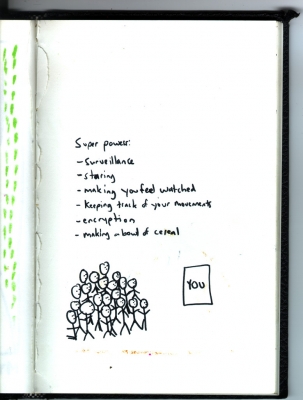 Super powers:
- Surveillance
- staring
- making you feel watched
- Keeping track of your movements
- encryption
- making a bowl of cereal
YOU